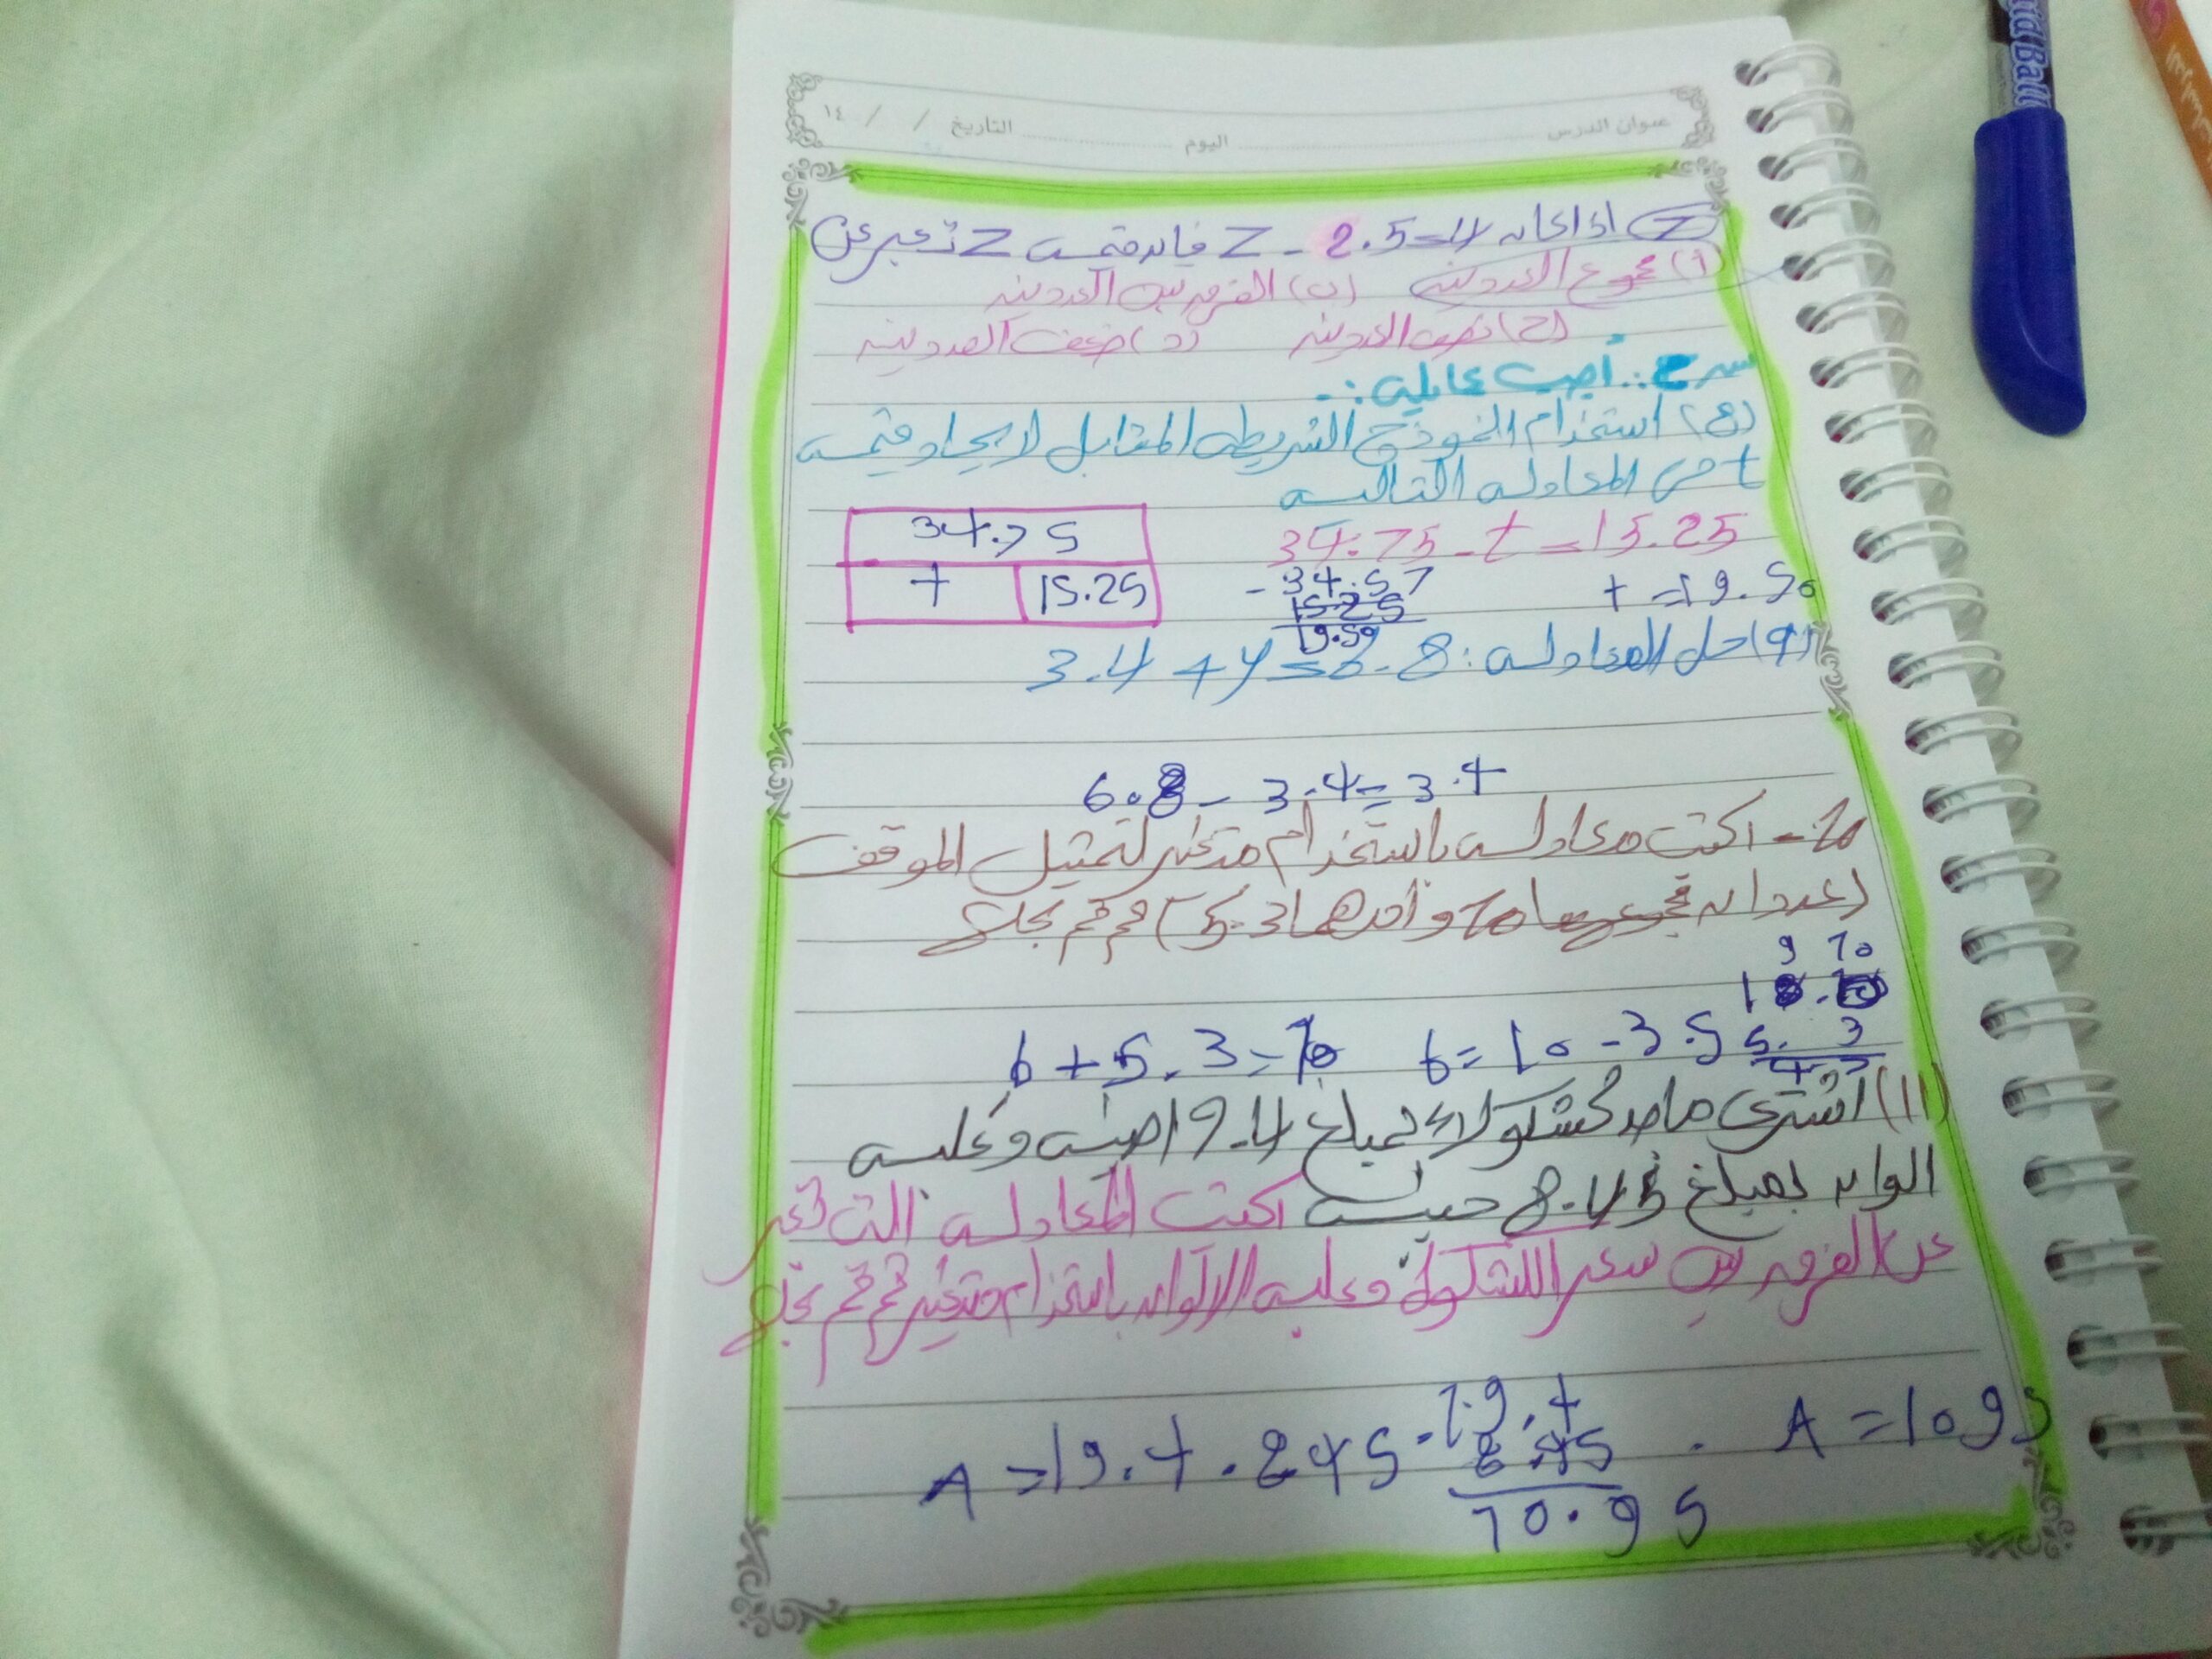 عنوان الدرس اليوم التاريخ / / ١٤
7 اذا كان Z - 2.5 = 4 فإن قيمة Z تعبر عن
(أ) مجموع العددين (ب) الفرق بين العددين
(ج) نصف العددين (د) ضعف العددين
أجب عما يلي :-
(8) استخدام النموذج الشريطي المقابل لايجاد قيمة
t من المعادلة التالية
34.75 - t = 15.25
34.75
t 15.25
- 34.57
15.25
19.50
t = 19.50
(9) حل المعادلة : 3.4 + y = 6.8
6.8 - 3.4 = 3.4
10 - اكتب معادلة باستخدام متغير لتمثيل الموقف
(عددان مجموعهما 10 وأحدهما 5.3) ثم قم بحلها
9 10
10.10
5.3
4.7
b + 5.3 = 10 b = 10 - 3.5
(11) اشترى ماجد كشكولاً بمبلغ 19.4 جنيه وعلبة
الوان بمبلغ 8.45 جنيه اكتب المعادلة التي تعبر
عن الفرق بين سعر الكشكول وعلبة الألوان باستخدام متغير ثم قم بحلها
A = 19.4 . 845
- 19.4
8.45
10.95
A = 1095
Ball